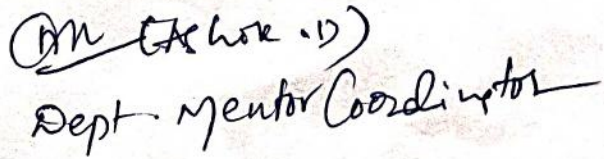 (Ashok .D)
Dept. Mentor Coordinator